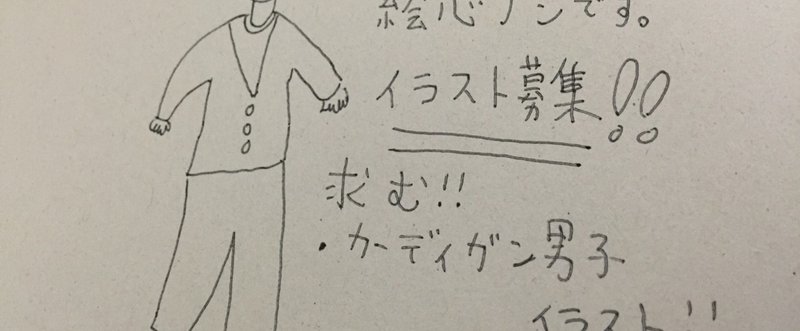 絵心ナシです。
イラスト募集!!
求む!!
・カーディガン男子
イラスト!!